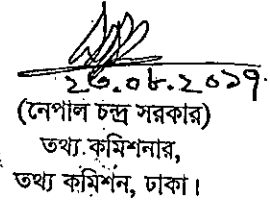 ২৩.০৮.২০১৭
(নেপাল চন্দ্র সরকার)
তথ্য কমিশনার,
তথ্য কমিশন, ঢাকা।